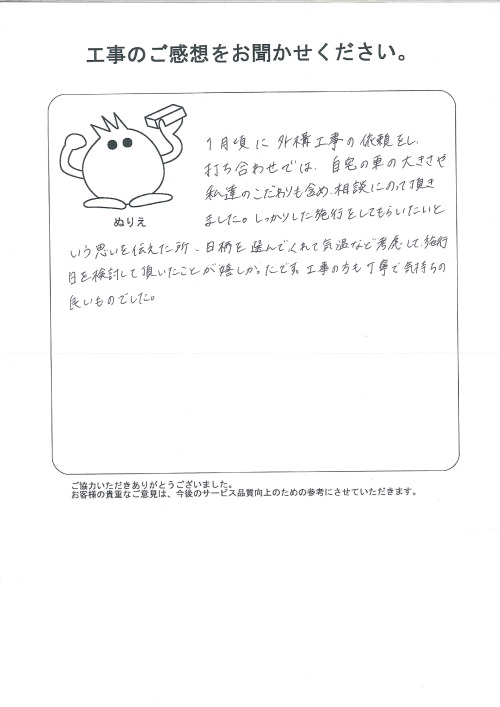 工事のご感想をお聞かせください。
1月頃に外構工事の依頼をし、
打ち合わせでは、自宅の車の大きさや
私達のこだわりも含め、相談にのって頂き
ました。しっかりした施行をしてもらいたいと
ぬりえ
いう思いを伝えた所、日柄を選んでくれて気温など考慮して、施行
日を検討して頂いたことが嬉しかったです。工事の方も丁寧で気持ちの
良いものでした。
ご協力いただきありがとうございました。
お客様の貴重なご意見は、今後のサービス品質向上のための参考にさせていただきます。